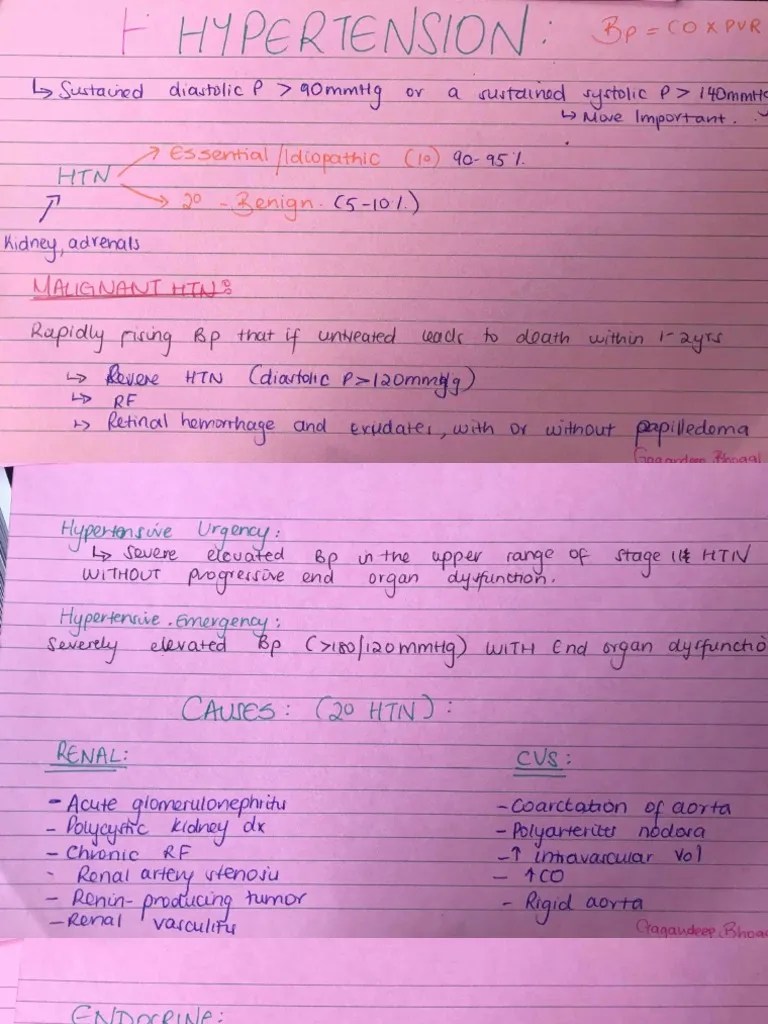 HYPERTENSION: Bp = CO X PVR
↳ Sustained diastolic P > 90mmHg or a sustained systolic P > 140mmHg
↳ More Important.
Essential/Idiopathic (1°) 90-95%.
HTN
2° - Benign. (5-10%)
Kidney, adrenals
MALIGNANT HTN:
Rapidly rising Bp that if untreated leads to death within 1-2yrs
↳ Severe HTN (diastolic P>120mmHg)
↳ RF
↳ Retinal hemorrhage and exudates, with or without papilledema
Gagandeep Bhogal
Hypertensive Urgency:
↳ severe elevated Bp in the upper range of stage HTN
WITHOUT progressive end organ dysfunction.
Hypertensive Emergency:
Severely elevated Bp (>180/120mmHg) WITH End organ dysfunctio
CAUSES: (2° HTN):
RENAL: CVS:
- Acute glomerulonephritis - Coarctation of aorta
- Polycystic kidney dx - Polyarterites nodosa
- Chronic RF - ↑ intravascular vol
- Renal artery stenosis - ↑CO
- Renin-producing tumor - Rigid aorta
- Renal vasculitis Gagandeep.Bhoga
ENDOCRINE: